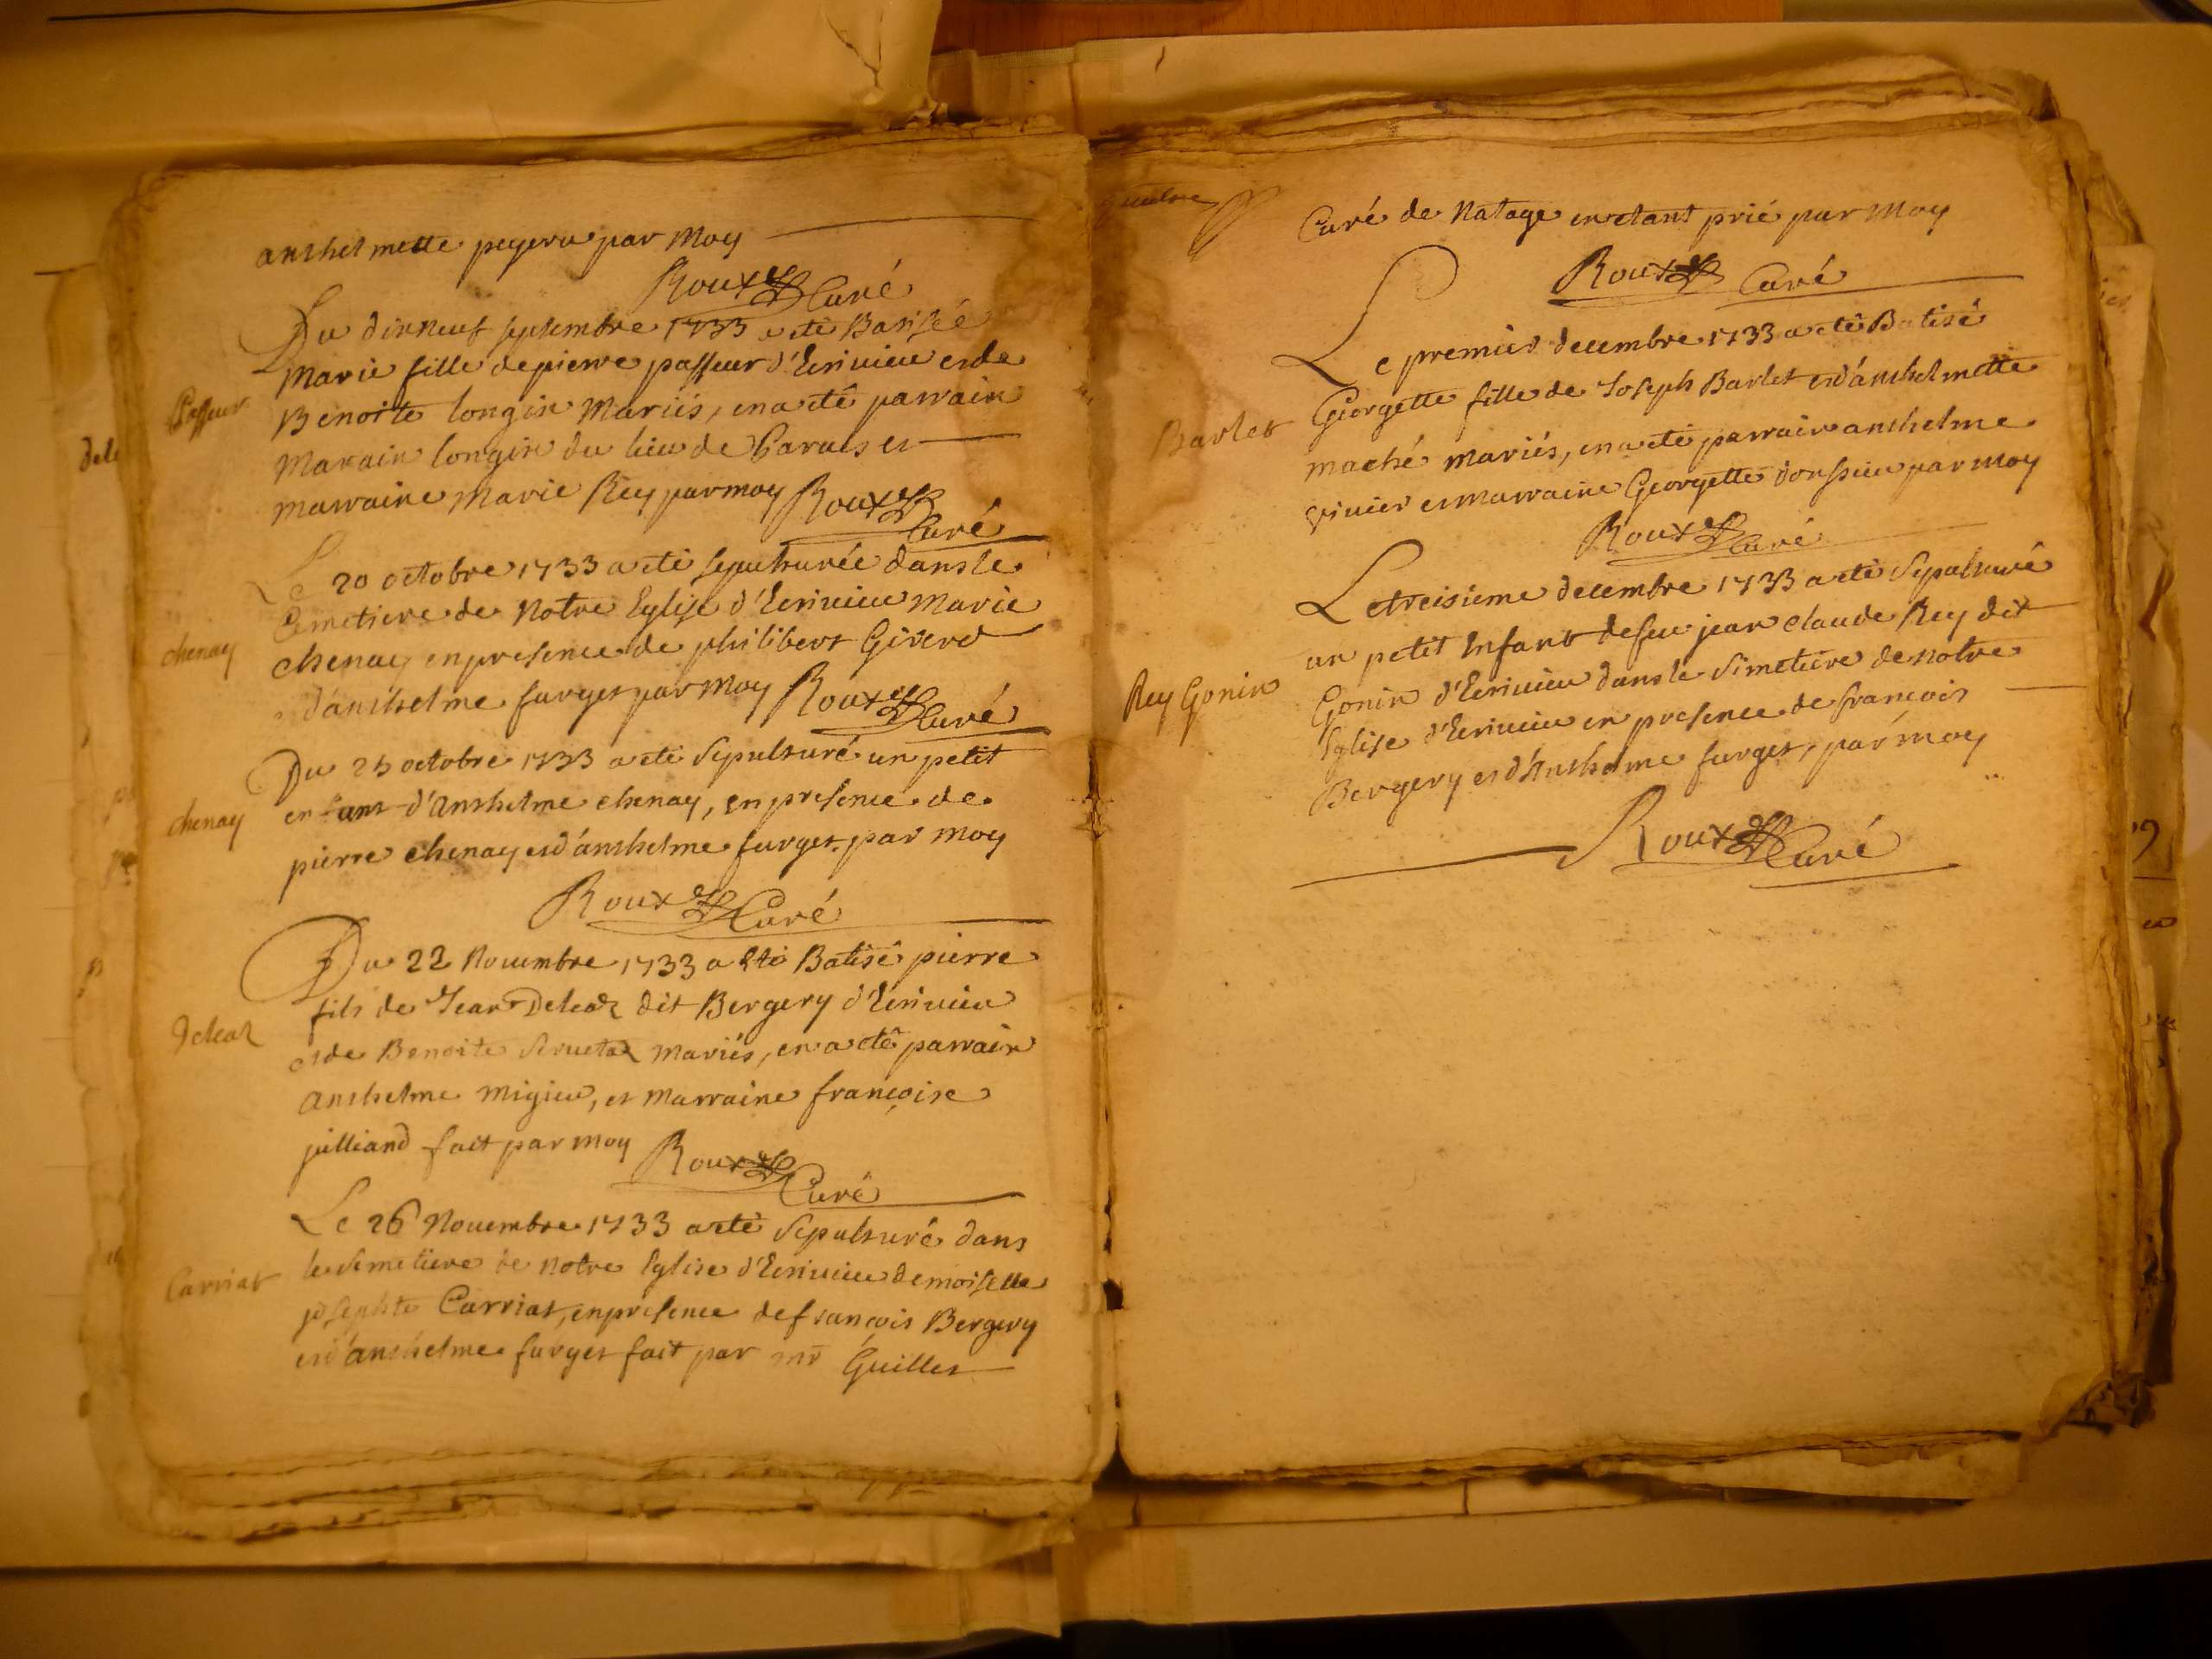 anthelmette peyera par Moy
Roux Curé
Du dixneuf septembre 1733 a eté Batisée
Passeur
Marie fille de pierre passeur d'Ecrivieu et de
Benoite longin Mariés, en a eté parrain
Marain longin du lieu de et
marraine Marie Rey par moy Roux
Curé
Le 20 octobre 1733 a eté sepulturée dans le
Cemetiere de Notre Eglise d'Ecrivieu Marie
chenay
chenay en presence de philibert Girerd
et d'anthelme furget par Moy Roux Curé
Du 25 octobre 1733 a eté Sepulturé un petit
chenay
enfant d'Anthelme chenay, en presence de
pierre chenay et d'anthelme furget par moy
Roux Curé
Du 22 Novembre 1733 a eté Batisé pierre
Deleaz
fils de Jean Deleaz dit Bergery d'Ecrivieu
et de Benoite Mariés, en a eté parrain
Anthelme Migieu, et Marraine françoise
juilliand fait par moy Roux
Curé
Le 26 Novembre 1733 a eté Sepulturé dans
Carriat
le Simetiere de Notre Eglise d'Ecrivieu demoiselle
josephte Carriat, en presence de françois Bergery
et d'anthelme furget fait par mr Guillet
Curé de Natage en etant prié par Moy
Roux Curé
Le premier decembre 1733 a eté Batisé
Barlet
Georgette fille de Joseph Barlet et d'anthelmette
maché mariés, en a eté parrain anthelme
vivier et marraine Georgette par moy
Roux Curé
Le treisieme decembre 1733 a eté Sepulturé
un petit Enfant de feu jean claude Rey dit
Rey Gonin
Gonin d'Ecrivieu dans le Simetiere de notre
Eglise d'Ecrivieu en presence de françois
Bergery et d'Anthelme furget, par moy
Roux Curé